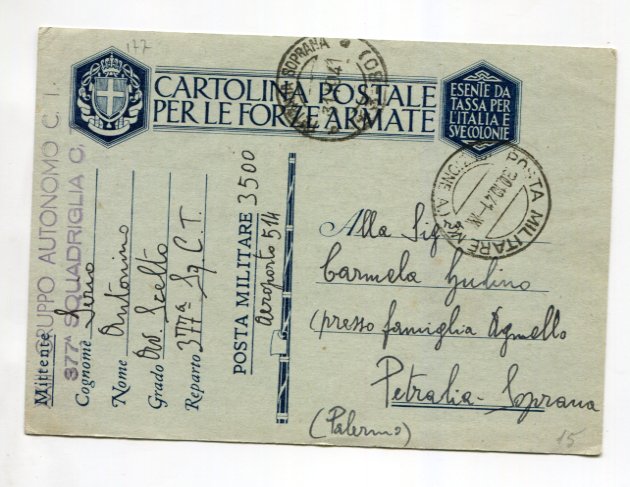 177
CARTOLINA POSTALE
PER LE FORZE ARMATE
ESENTE DA
TASSA PER
L'ITALIA E
SVE COLONIE
PETRALIA SOPRANA
POSTA MILITARE
30.10.41
GRUPPO AUTONOMO C. T.
377A SQUADRIGLIA C.
Mittente
Cognome
Nome Antonino
Grado Av. Scelto
Reparto 377ª Sq C. T.
POSTA MILITARE 3500
Aeroporto 514
Alla Sig
Carmela Gulino
(presso famiglia Agnello
Petralia-Soprana
(Palermo)
15